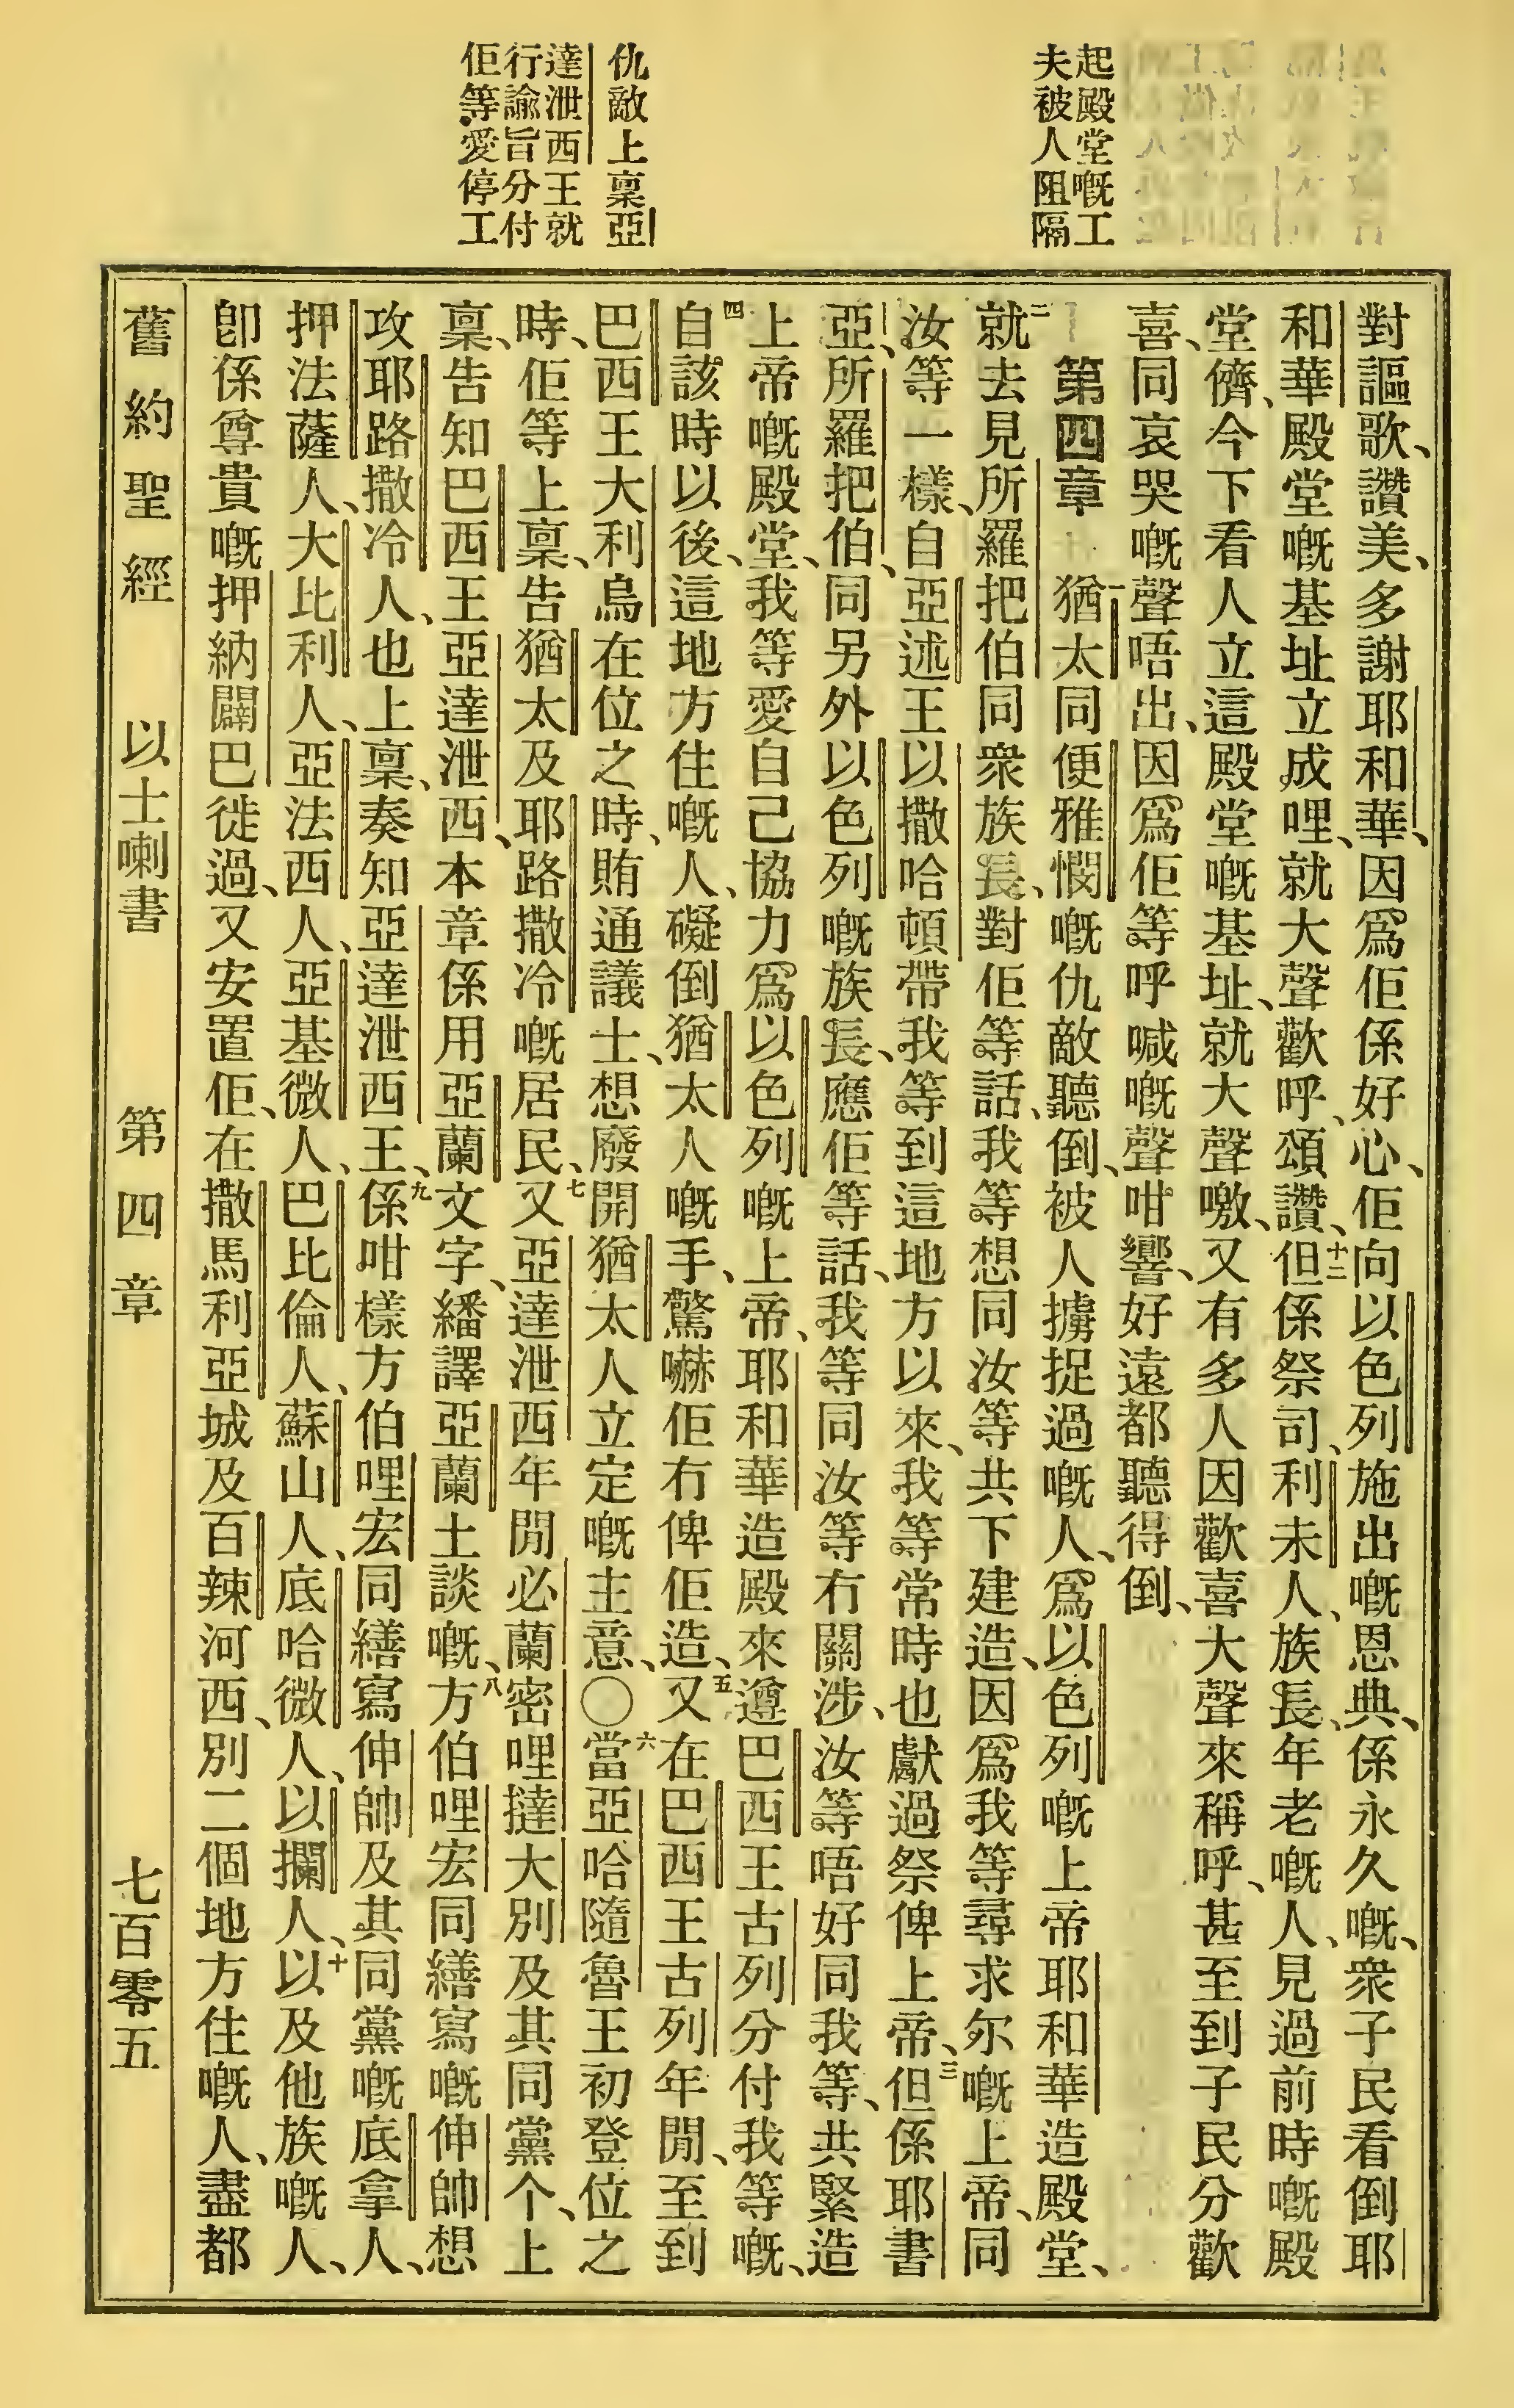 起殿堂嘅工
夫被人阻隔
仇敵上稟亞
達泄西王就
行諭旨分付
佢等愛停工
對謳歌、讚美、多謝耶和華、因爲佢係好心、佢向以色列施出嘅恩典、係永久嘅、衆子民看倒耶
和華殿堂嘅基址立成哩、就大聲歡呼、頌讚、十二但係祭司、利未人、族長、年老嘅人、見過前時嘅殿
堂儕、今下看人立這殿堂嘅基址、就大聲噭、又有多人因歡喜大聲來稱呼、甚至到子民分歡
喜、同哀哭嘅聲唔出、因爲佢等呼喊嘅聲咁響、好遠都聽得倒、
第四章 一猶太同便雅憫嘅仇敵聽倒、被人擄捉過嘅人、爲以色列嘅上帝耶和華造殿堂、
二就去見所羅把伯同衆族長、對佢等話、我等想同汝等共下建造、因爲我等尋求尔嘅上帝、同
汝等一樣、自亞述王以撒哈頓帶我等到這地方以來、我等常時也獻過祭俾上帝、三但係耶書
亞、所羅把伯、同另外以色列嘅族長、應佢等話、我等同汝等冇關涉、汝等唔好同我等、共緊造
上帝嘅殿堂、我等愛自己協力爲以色列嘅上帝、耶和華造殿來遵巴西王古列分付我等嘅、
四自該時以後、這地方住嘅人、礙倒猶太人嘅手、驚嚇佢冇俾佢造、五又在巴西王古列年閒、至到
巴西王大利烏在位之時、賄通議士、想廢開猶太人立定嘅主意、〇六當亞哈隨魯王初登位之
時、佢等上稟、告猶太及耶路撒冷嘅居民、七又亞達泄西年閒必蘭密哩撻大別及其同黨个、上
稟、告知巴西王亞達泄西、本章係用亞蘭文字、繙譯亞蘭土談嘅、八方伯哩宏同繕寫嘅伸帥想
攻耶路撒冷人、也上稟、奏知亞達泄西王、九係咁樣方伯哩宏同繕寫伸帥及其同黨嘅底拿人、
押法薩人、大比利人、亞法西人、亞基微人、巴比倫人、蘇山人、底哈微人、以攔人、十以及他族嘅人、
卽係尊貴嘅押納闢巴徙過、又安置佢、在撒馬利亞城及百辣河西、別二個地方住嘅人、盡都
舊約聖經 以士喇書 第四章 七百零五